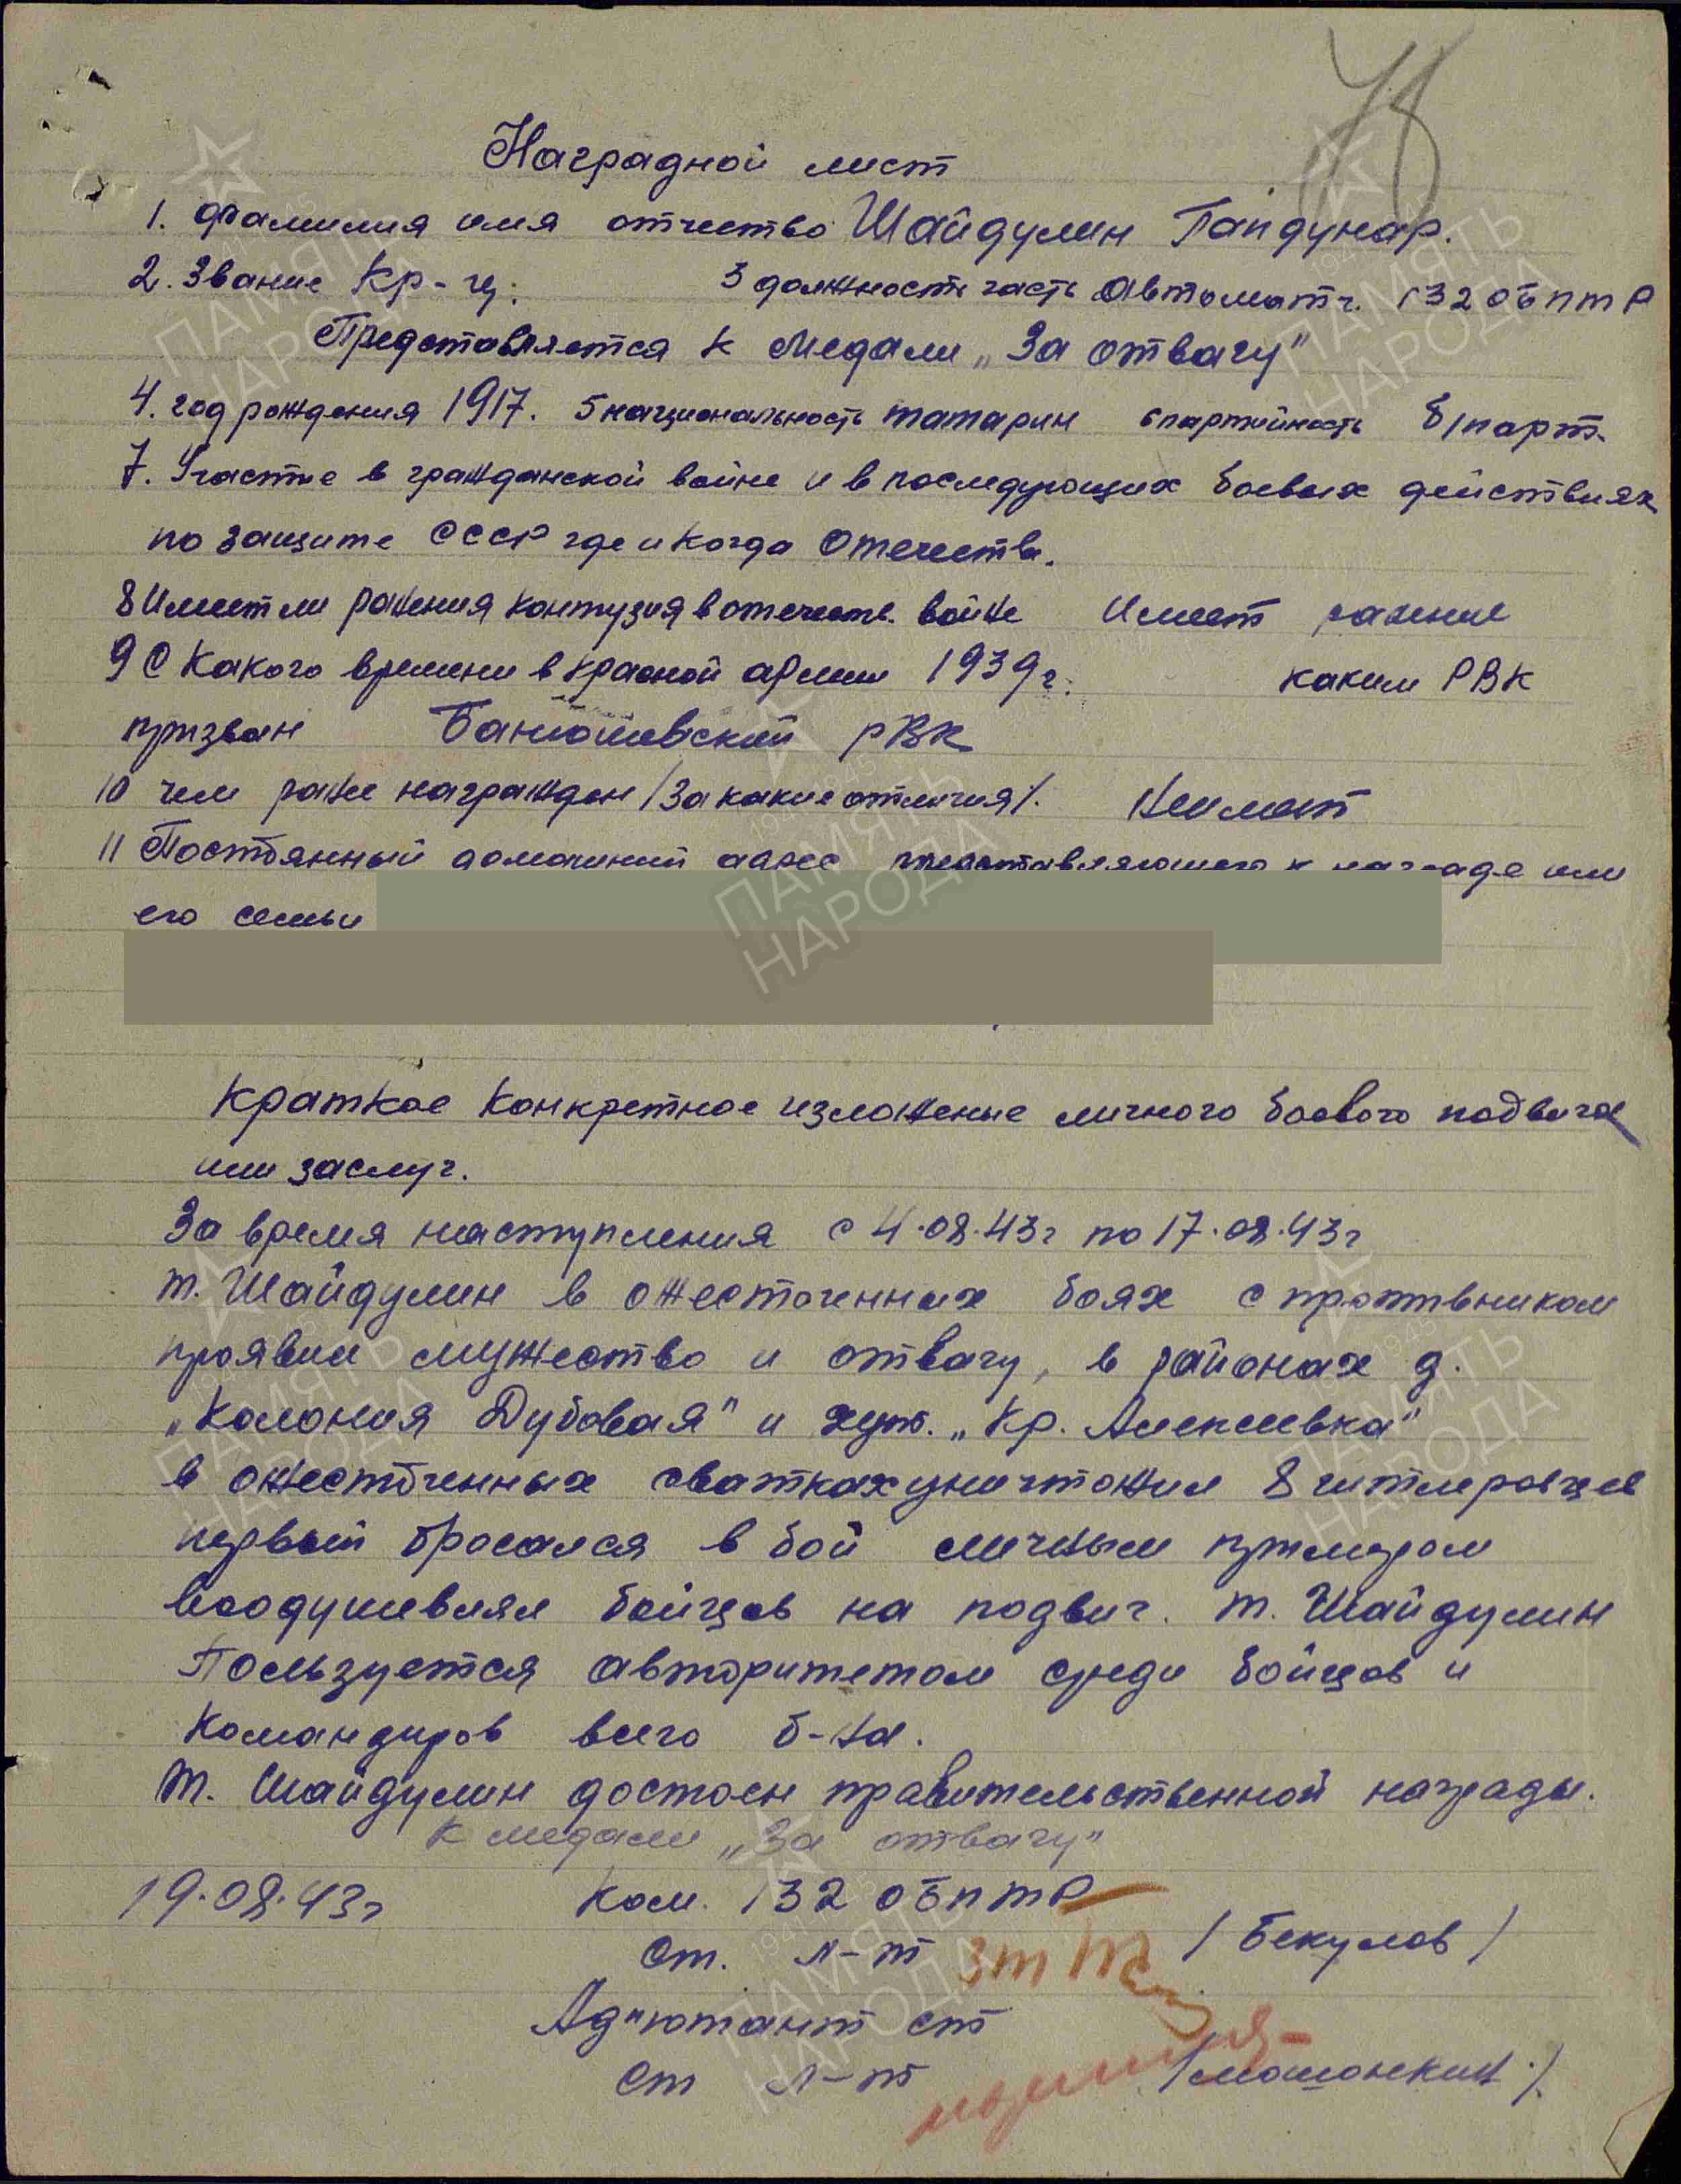 Наградной лист
1. Фамилия имя отчество Шайдулин Гандунар.
2. Звание Кр-ц. 3 должность часть Автоматч. 132 обптР
Представляется к Медали „За отвагу"
4. год рождения 1917. 5 национальность татарин 6 партийность б/парт.
7. Участие в гражданской войне и в последующих боевых действиях
по защите СССР где и когда Отечеств.
8 Имеет ли ранения контузия в отечеств. войне Имеет ранение
9 С Какого времени в красной армии 1939 г. каким РВК
призван РВК
10 чем ранее награжден /За какие отличия/. Неимеет
11 Постоянный домашний адрес представляющего к награде или
его семьи
Краткое Конкретное изложение личного боевого подвига
или заслуг.
За время наступления с 4.08.43г по 17.08.43г
т. Шайдулин в ожесточенных боях с противником
проявил мужество и отвагу, в районах д.
„Колония Дубовая" и хут. „Кр. Алексеевка"
в ожесточенных сватках уничтожил 8 гитлеровцев
первый бросался в бой личным примером
воодушевлял бойцов на подвиг. т. Шайдулин
Пользуется авторитетом среди бойцов и
Командиров всего б-на.
Т. Шайдулин достоен правительственной награды.
к медали „За отвагу"
19.08.43г Ком. 132 обптР
Ст. л-т /Бекулов/
Адъютант ст
Ст л-т /Мошонкин/.
ПАМЯТЬ НАРОДА
1941-1945